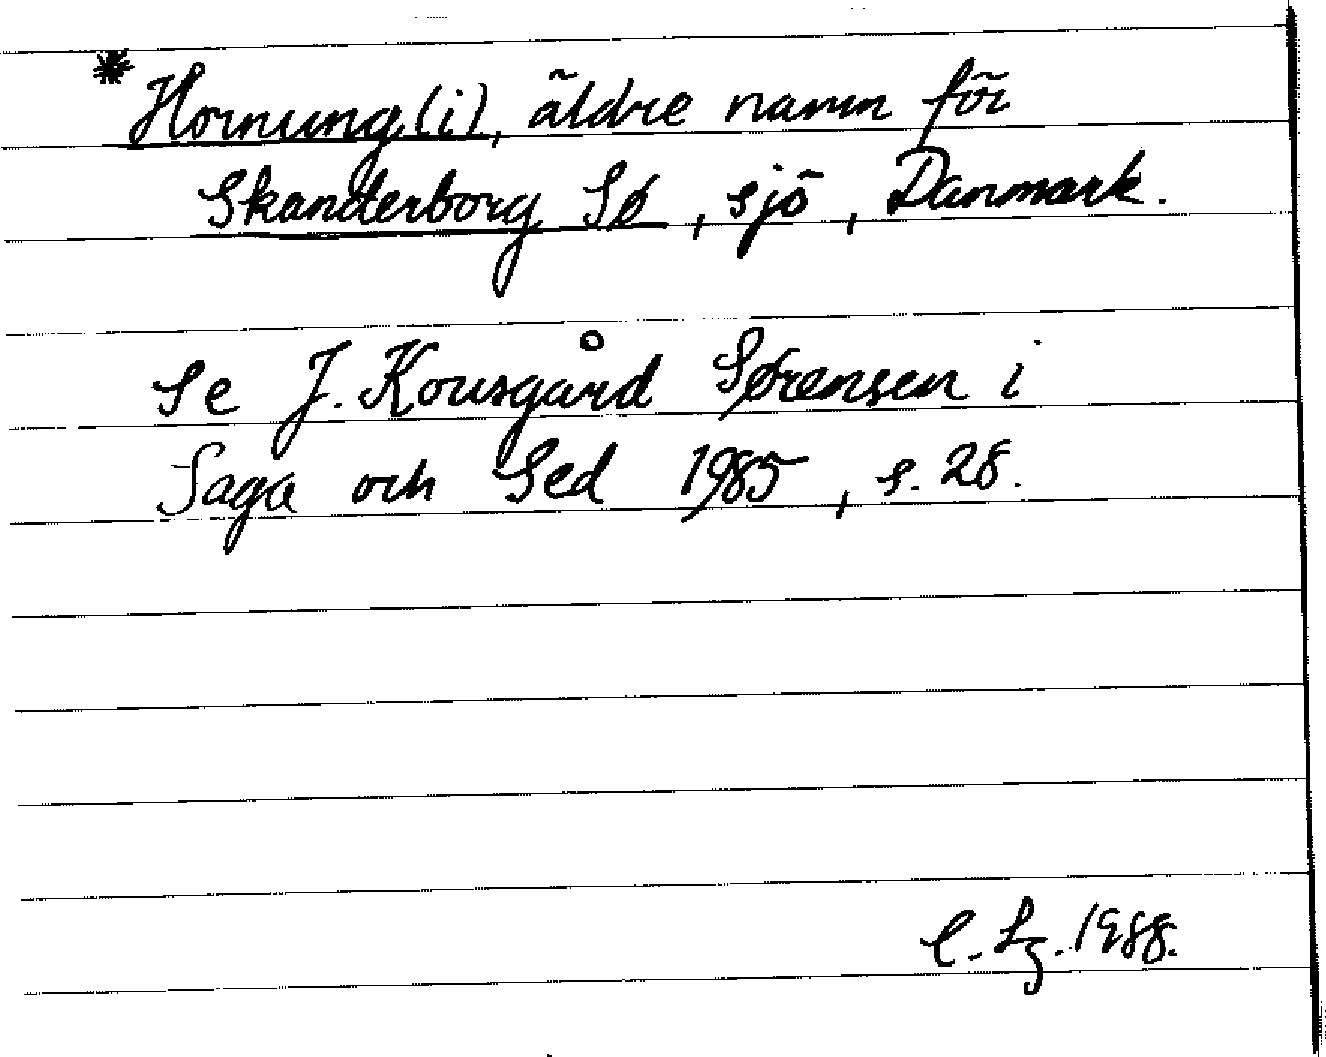 *Hornung(i), äldre namn för
Skanderborg Sø, sjö, Danmark.
Se J. Kousgård Sørensen i
Saga och Sed 1985, s. 28.
C. Lg. 1988.